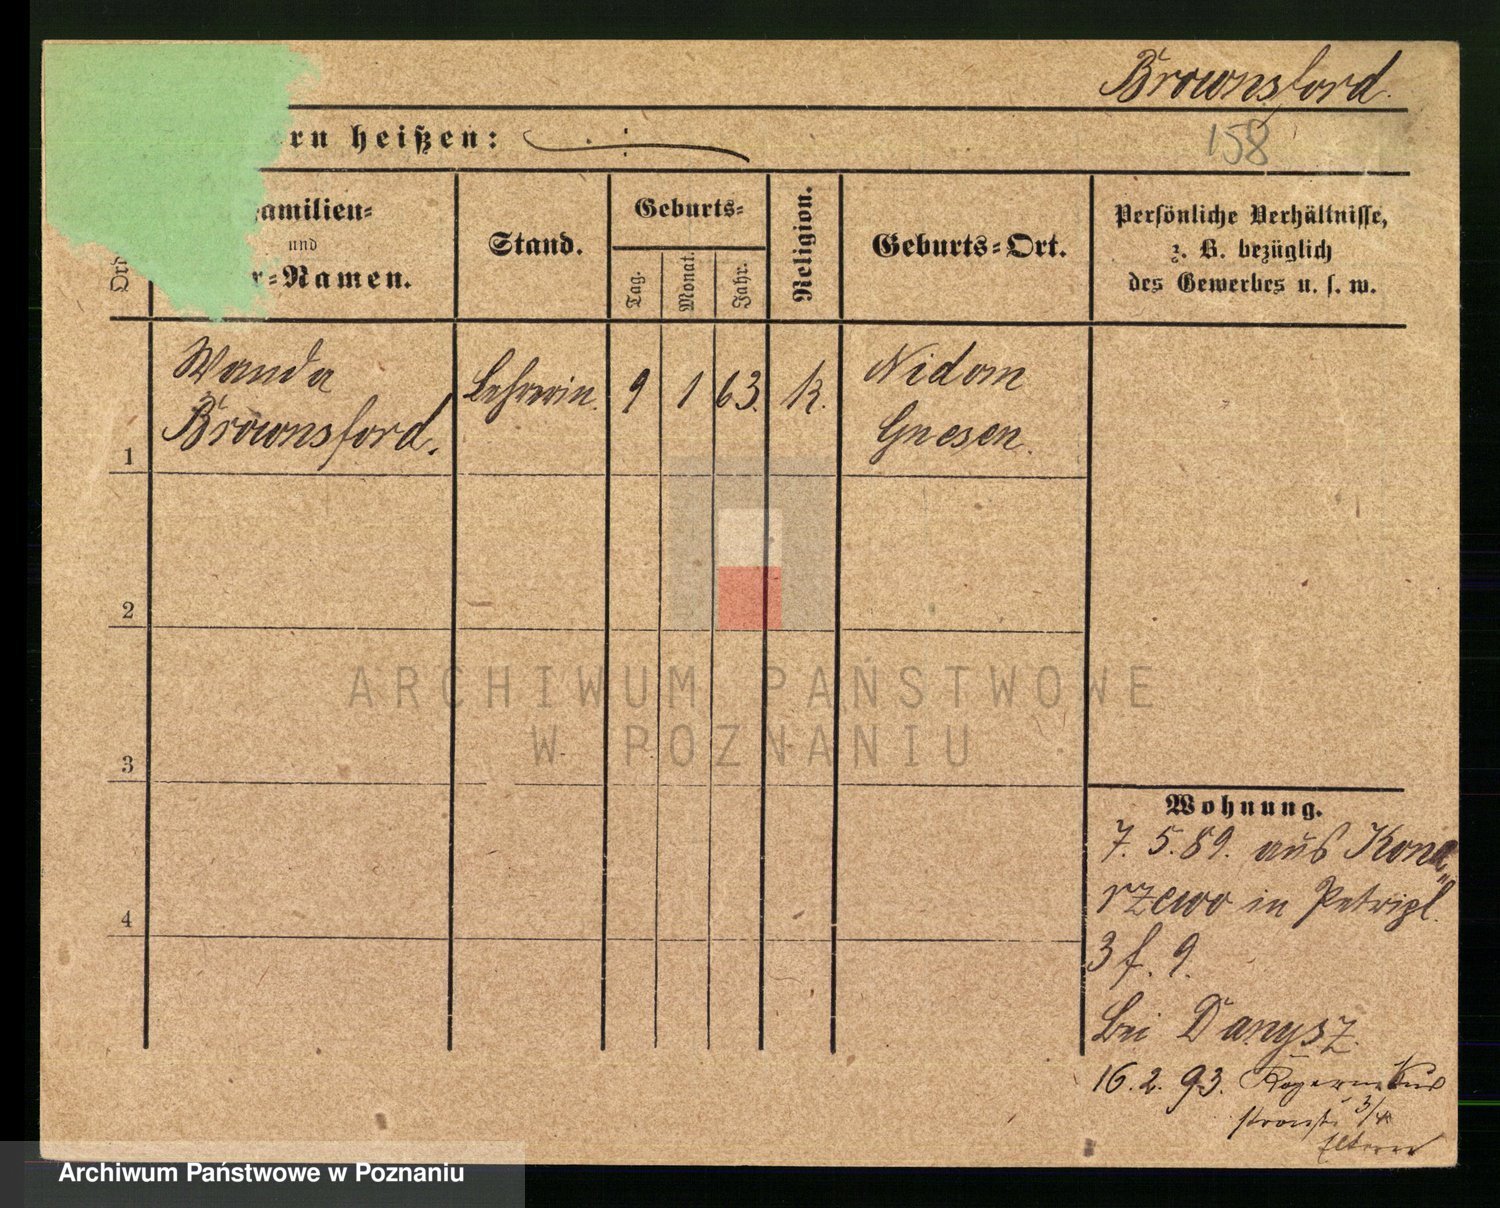 Brownsford.
ern heißen:
158
Familien=
und
r=Namen.
Stand.
Geburts=
Tag.
Monat.
Jahr.
Religion.
Geburts=Ort.
Persönliche Verhältnisse,
z. B. bezüglich
des Gewerbes u. s. w.
Ord
1
Wanda
Brownsford.
Lehrerin.
9
1
63.
k.
Nidom
Gnesen.
2
3
4
Wohnung.
7. 5. 89. aus Kona
rzewo in Petripl.
3 f. 9.
bei Danysz
16. 2. 93.
3/4
Eltern
ARCHIWUM PAŃSTWOWE
W POZNANIU
Archiwum Państwowe w Poznaniu